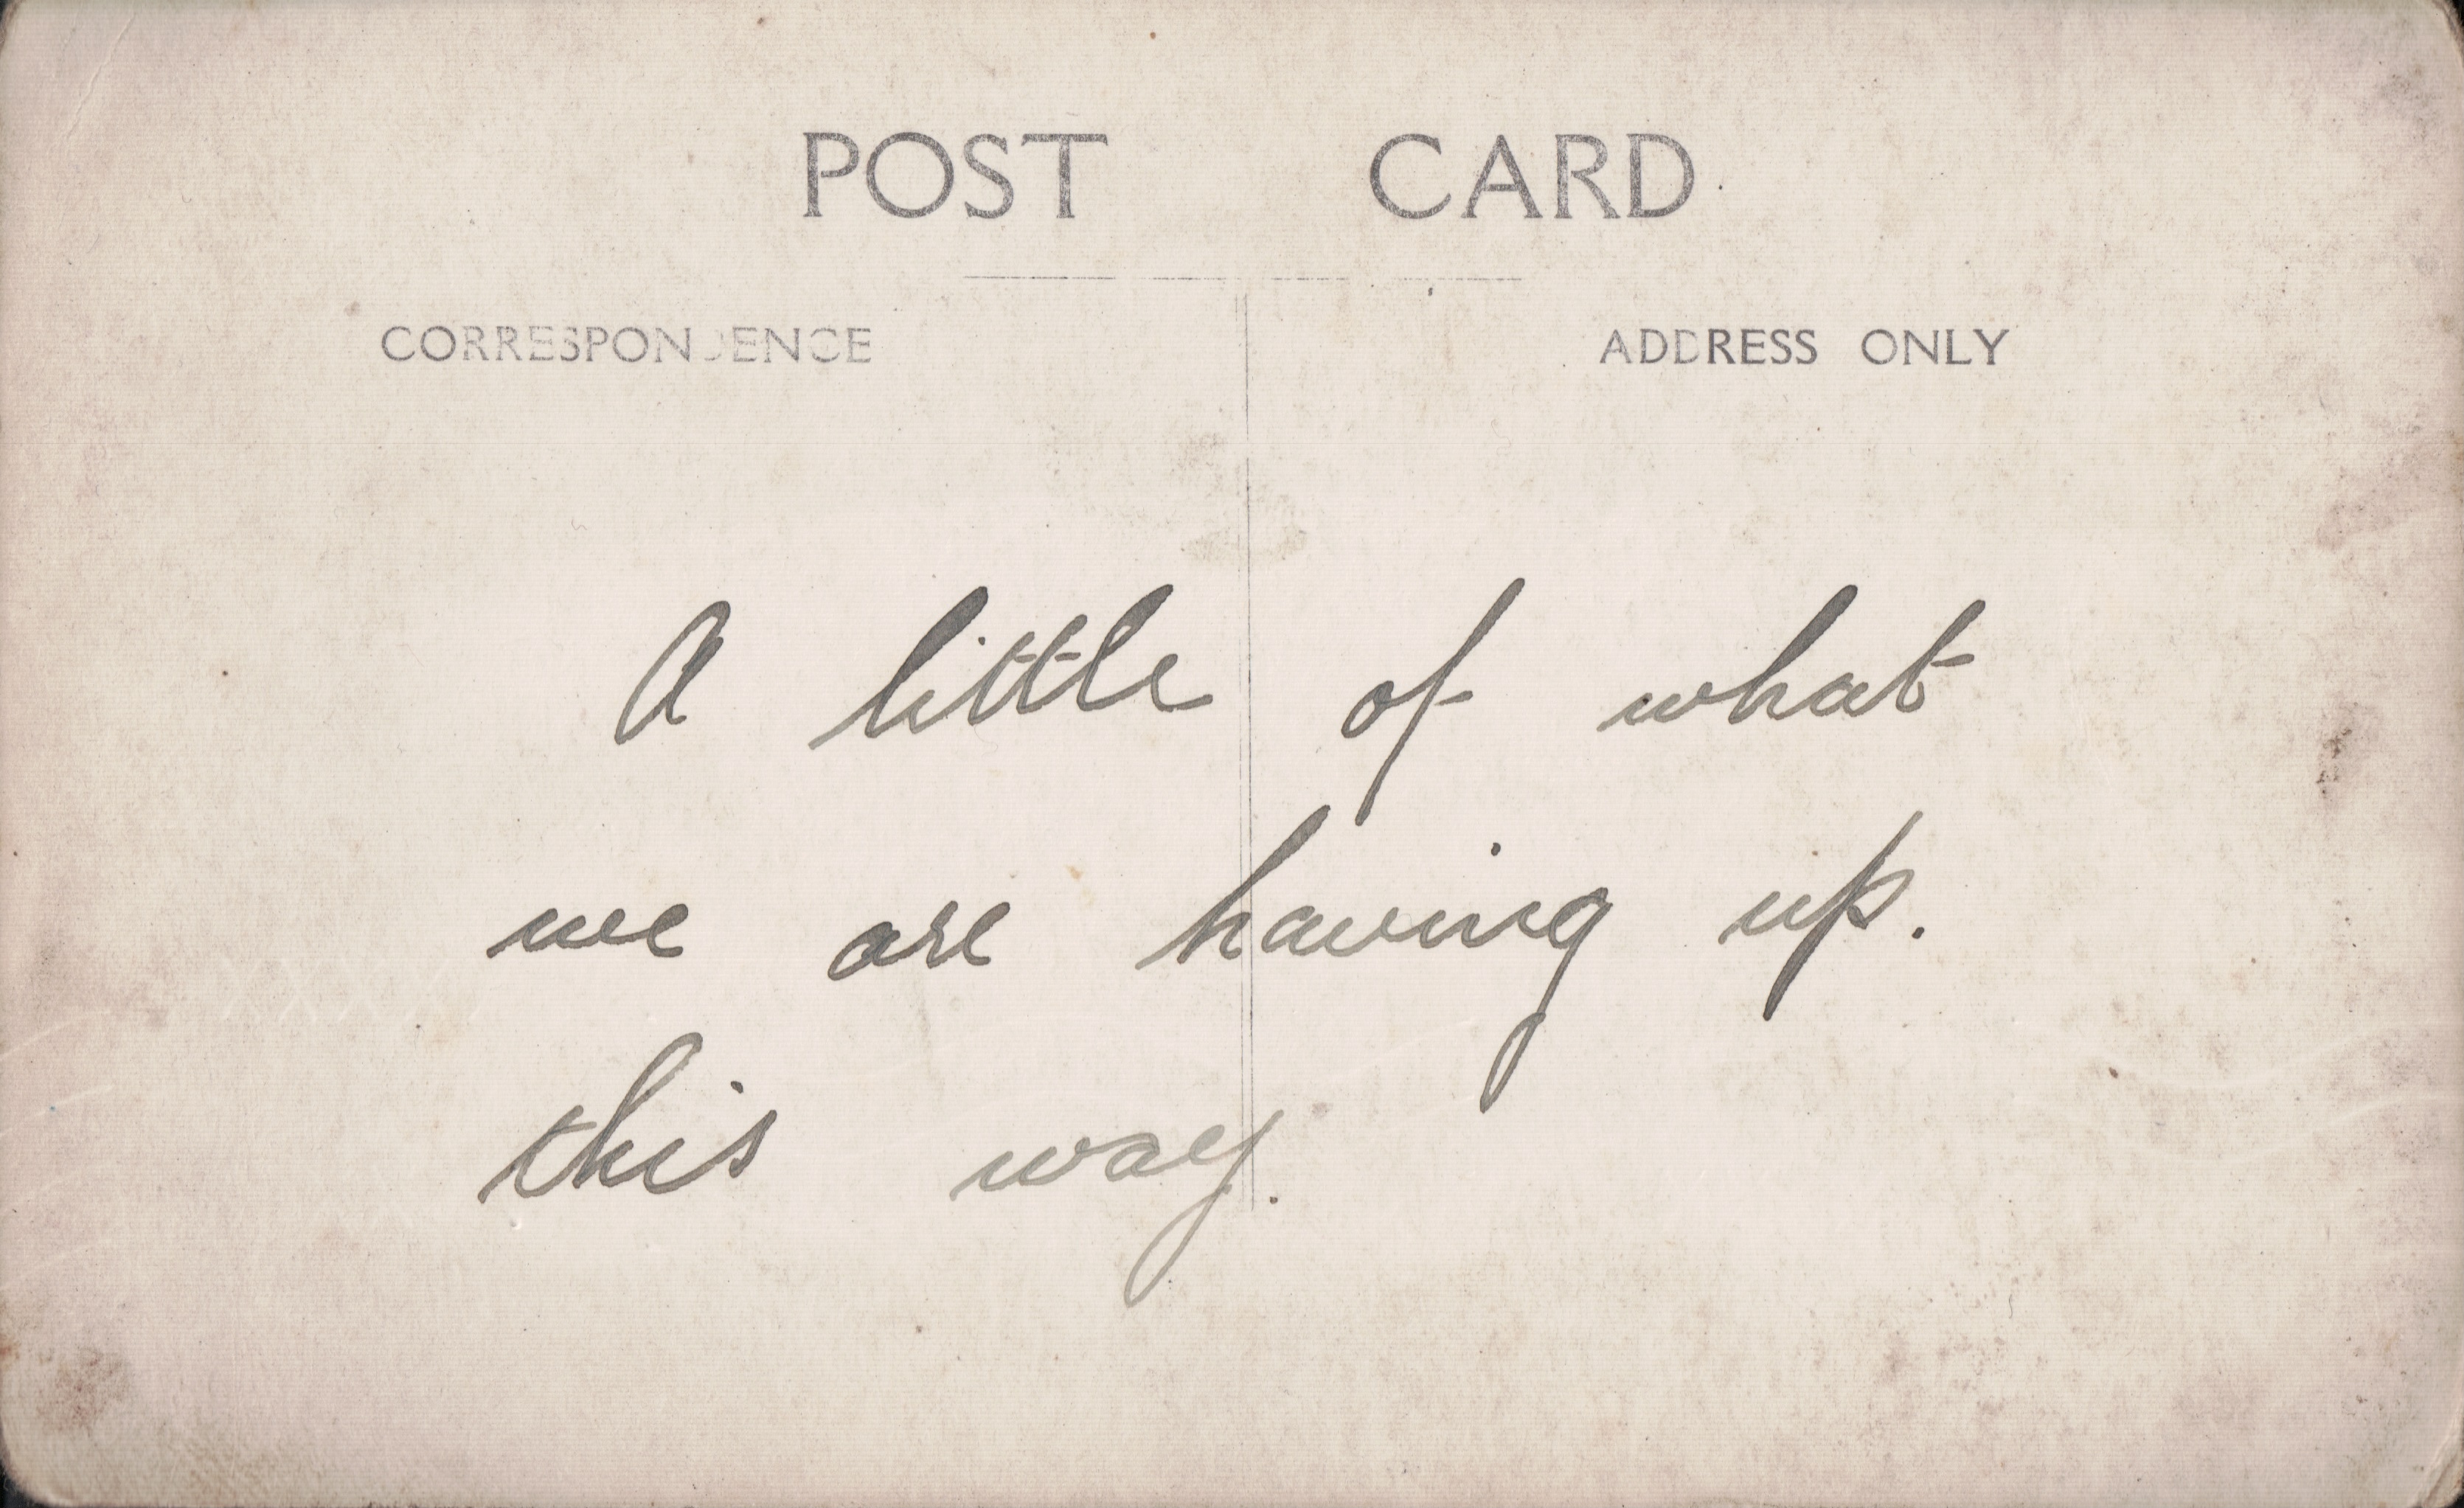 POST CARD
CORRESPONDENCE
ADDRESS ONLY
A little of what
we are having up.
this way.